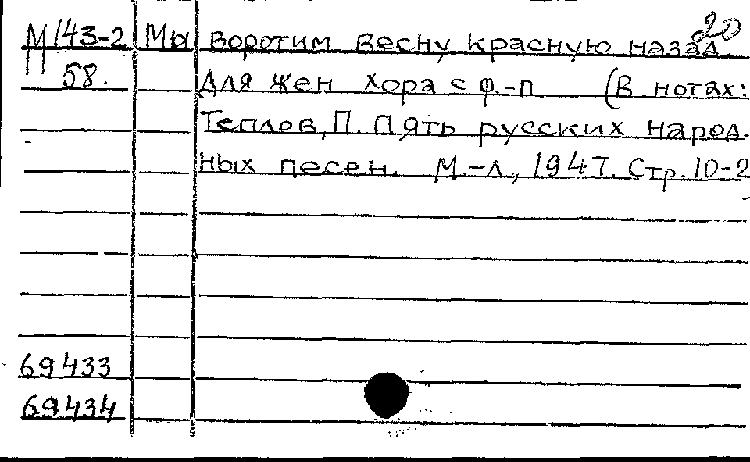 20
М143-2 Мы воротим весну красную назад.
58. Для жен хора с ф.-п (В нотах:
Теплов, П. Пять русских народ.
ных песен. М.-Л., 1947. Стр. 10-2
69433
69434